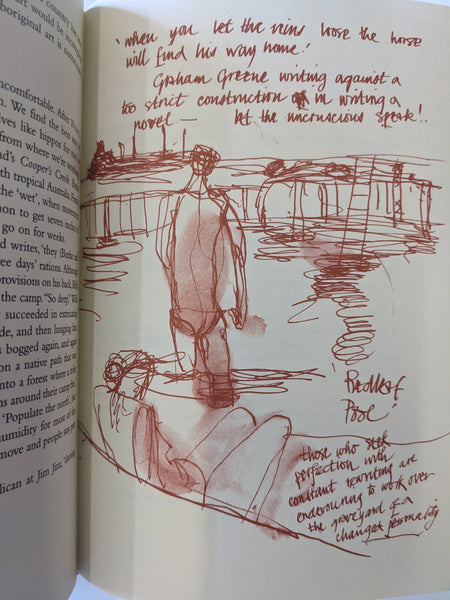 country for
art would be
aboriginal art is
ncomfortable. After
. We find the best
lves like hippos for
from where we're
d's Cooper's Creek.
th tropical Australia.
the 'wet', when
on to get seven inches
go on for weeks.
d writes, 'they (Burke
ree days' rations. Although
provisions on his back,
the camp. "So deep,"
succeeded in extricating
de, and then lunging
s bogged again, and again
on a native path that was
nto a forest where a
ns around their camp fire
'Populate the north',
humidity for most of the
move and people stay
lican at Jim Jim,
'when you let the reins loose the horse
will find his way home.'
Graham Greene writing against a
too strict construction in writing a
novel — let the unconscious speak!..
Redleaf
Pool
those who seek
perfection with
constant rewriting are
endeavouring to work over
the graveyard of a
changed personality